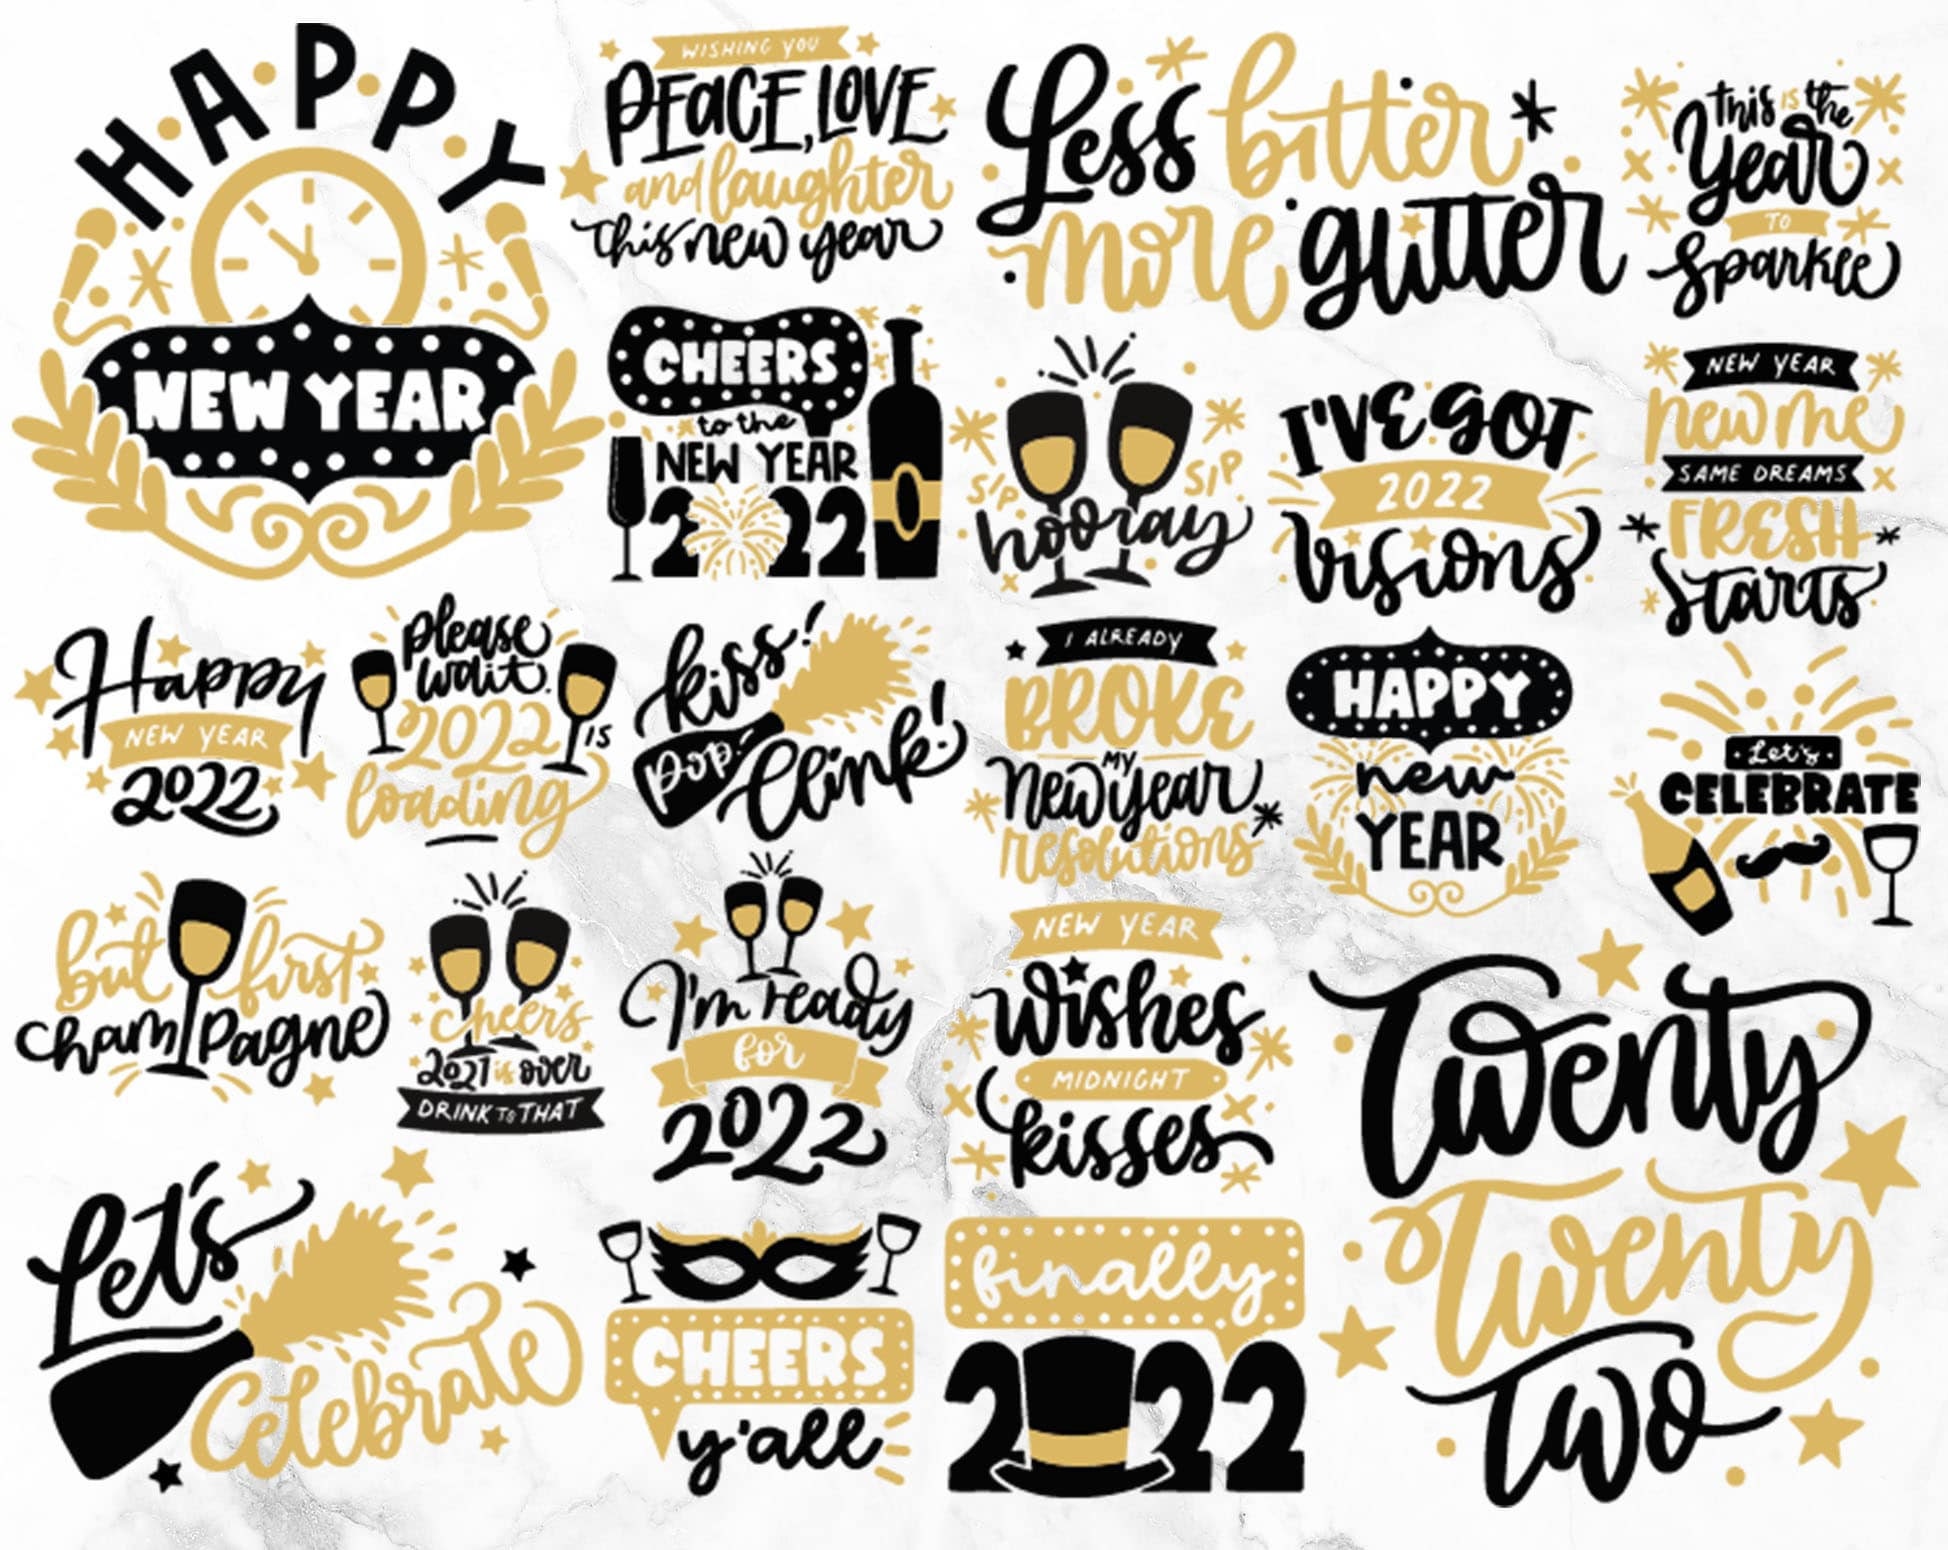 HAPPY
NEW YEAR
WISHING YOU
PEACE, LOVE
and laughter
this new year
Less bitter
more glitter
this is the
Year
TO
Sparkle
CHEERS
to the
NEW YEAR
2022
SIP SIP
hooray
I'VE GOT
2022
visions
NEW YEAR
new me
SAME DREAMS
FRESH
starts
Happy
NEW YEAR
2022
please
wait.
2022 is
loading
kiss!
pop.
Clink!
I ALREADY
BROKE
MY
New year
resolutions
HAPPY
new
YEAR
Let's
CELEBRATE
but first
champagne
cheers
2021 is over
DRINK TO THAT
I'm ready
for
2022
NEW YEAR
wishes
MIDNIGHT
kisses
Twenty
Twenty
Two
Let's
Celebrate
CHEERS
y'all
finally
2022